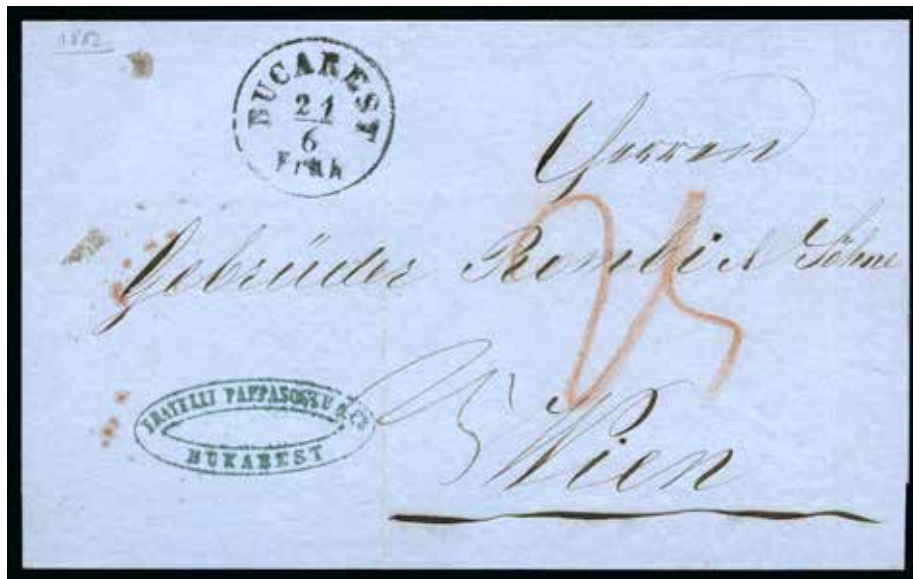 1862
BUCAREST
21
6
Früh
Herren
Gebrüder Rombi & Söhne
25
FRATELLI PAPPASOGLU & Cº
BUKAREST
Wien